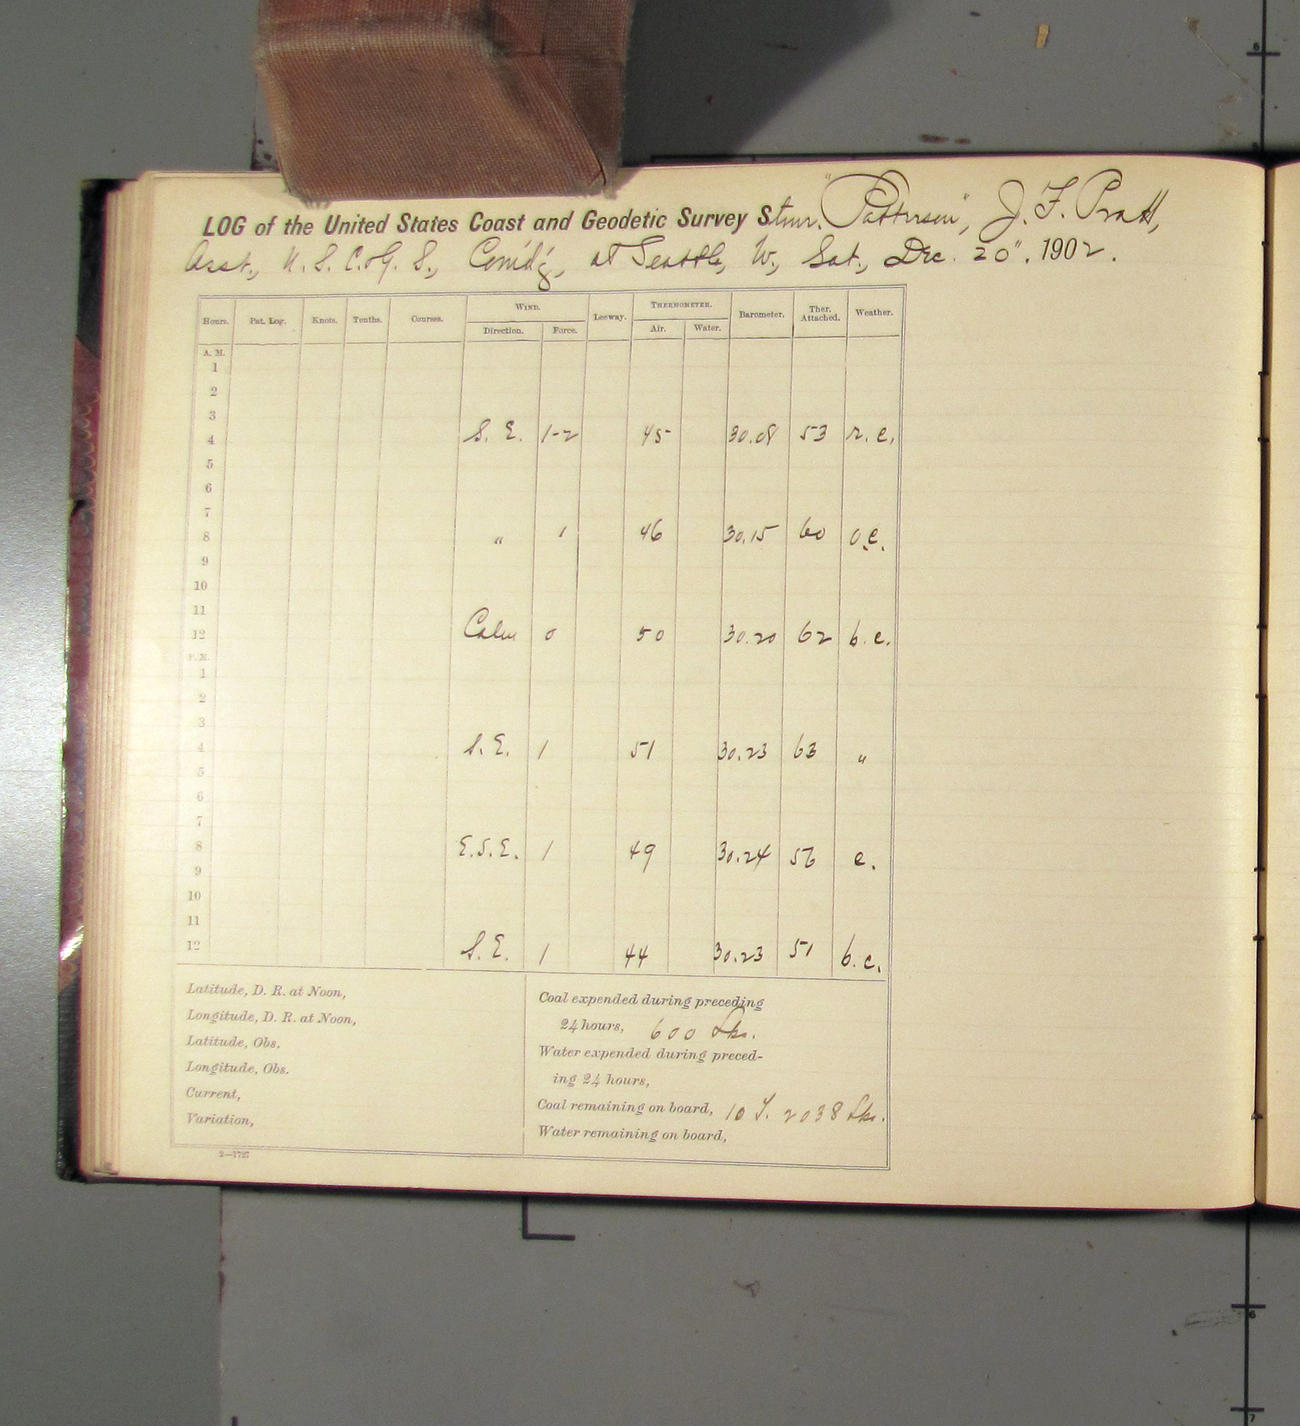 LOG of the United States Coast and Geodetic Survey Stmr. "Patterson", J. F. Pratt,
Asst., U. S. C. & G. S., Com'd'g, at Seattle, W., Sat., Dec. 20", 1902.
Hours. Pat. Log. Knots. Tenths. Courses. WIND. Leeway. THERMOMETER. Barometer. Ther. Attached. Weather.
Direction. Force. Air. Water.
A. M.
1
2
3
4 S. E. 1-2 45 30.08 53 r. c.
5
6
7
8 " 1 46 30.15 60 o.c.
9
10
11
12 Calm 0 50 30.20 62 b. c.
P. M.
1
2
3
4 S. E. 1 51 30.23 63 "
5
6
7
8 E.S.E. 1 49 30.24 56 c.
9
10
11
12 S. E. 1 44 30.23 51 b. c.
Latitude, D. R. at Noon,
Longitude, D. R. at Noon,
Latitude, Obs.
Longitude, Obs.
Current,
Variation,
Coal expended during preceding
24 hours, 600 Lbs.
Water expended during preced-
ing 24 hours,
Coal remaining on board, 10 T. 2038 Lbs.
Water remaining on board,
2—1727
6
6
7